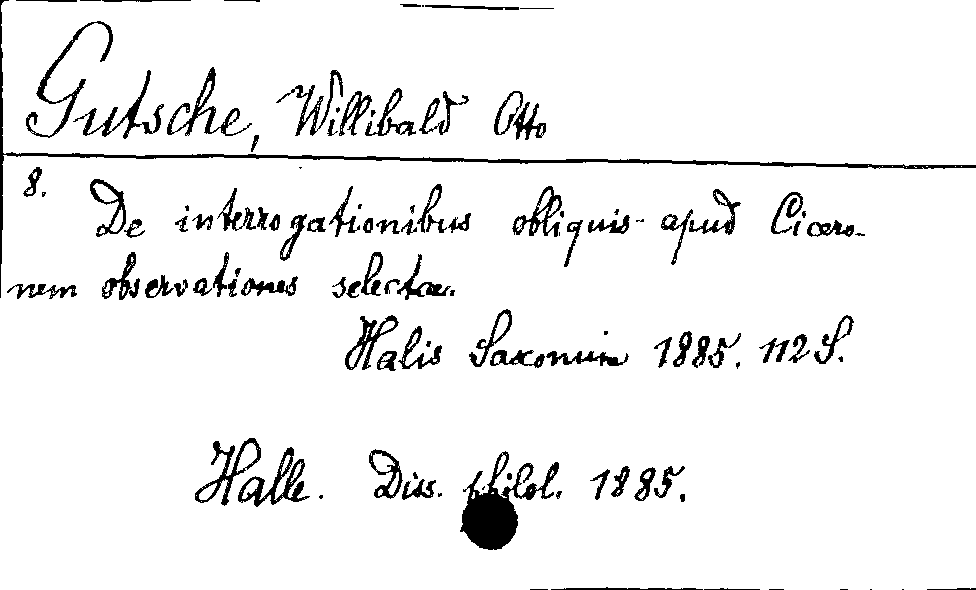 Gutsche, Willibald Otto
8. De interrogationibus obliquis apud Cicero-
nem observationes selectae.
Halis Saxonum 1885. 112 S.
Halle. Diss. philol. 1885.